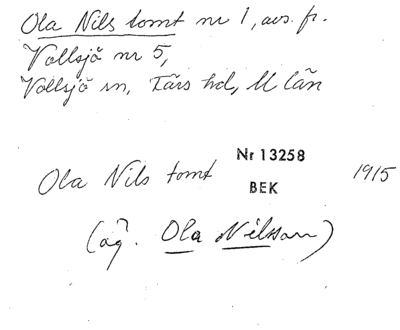 Ola Nils tomt nr 1, avs. fr.
Vollsjö nr 5,
Vollsjö sn, Färs hd, M län
Ola Nils tomt Nr 13258 BEK 1915
(äg. Ola Nilsson)